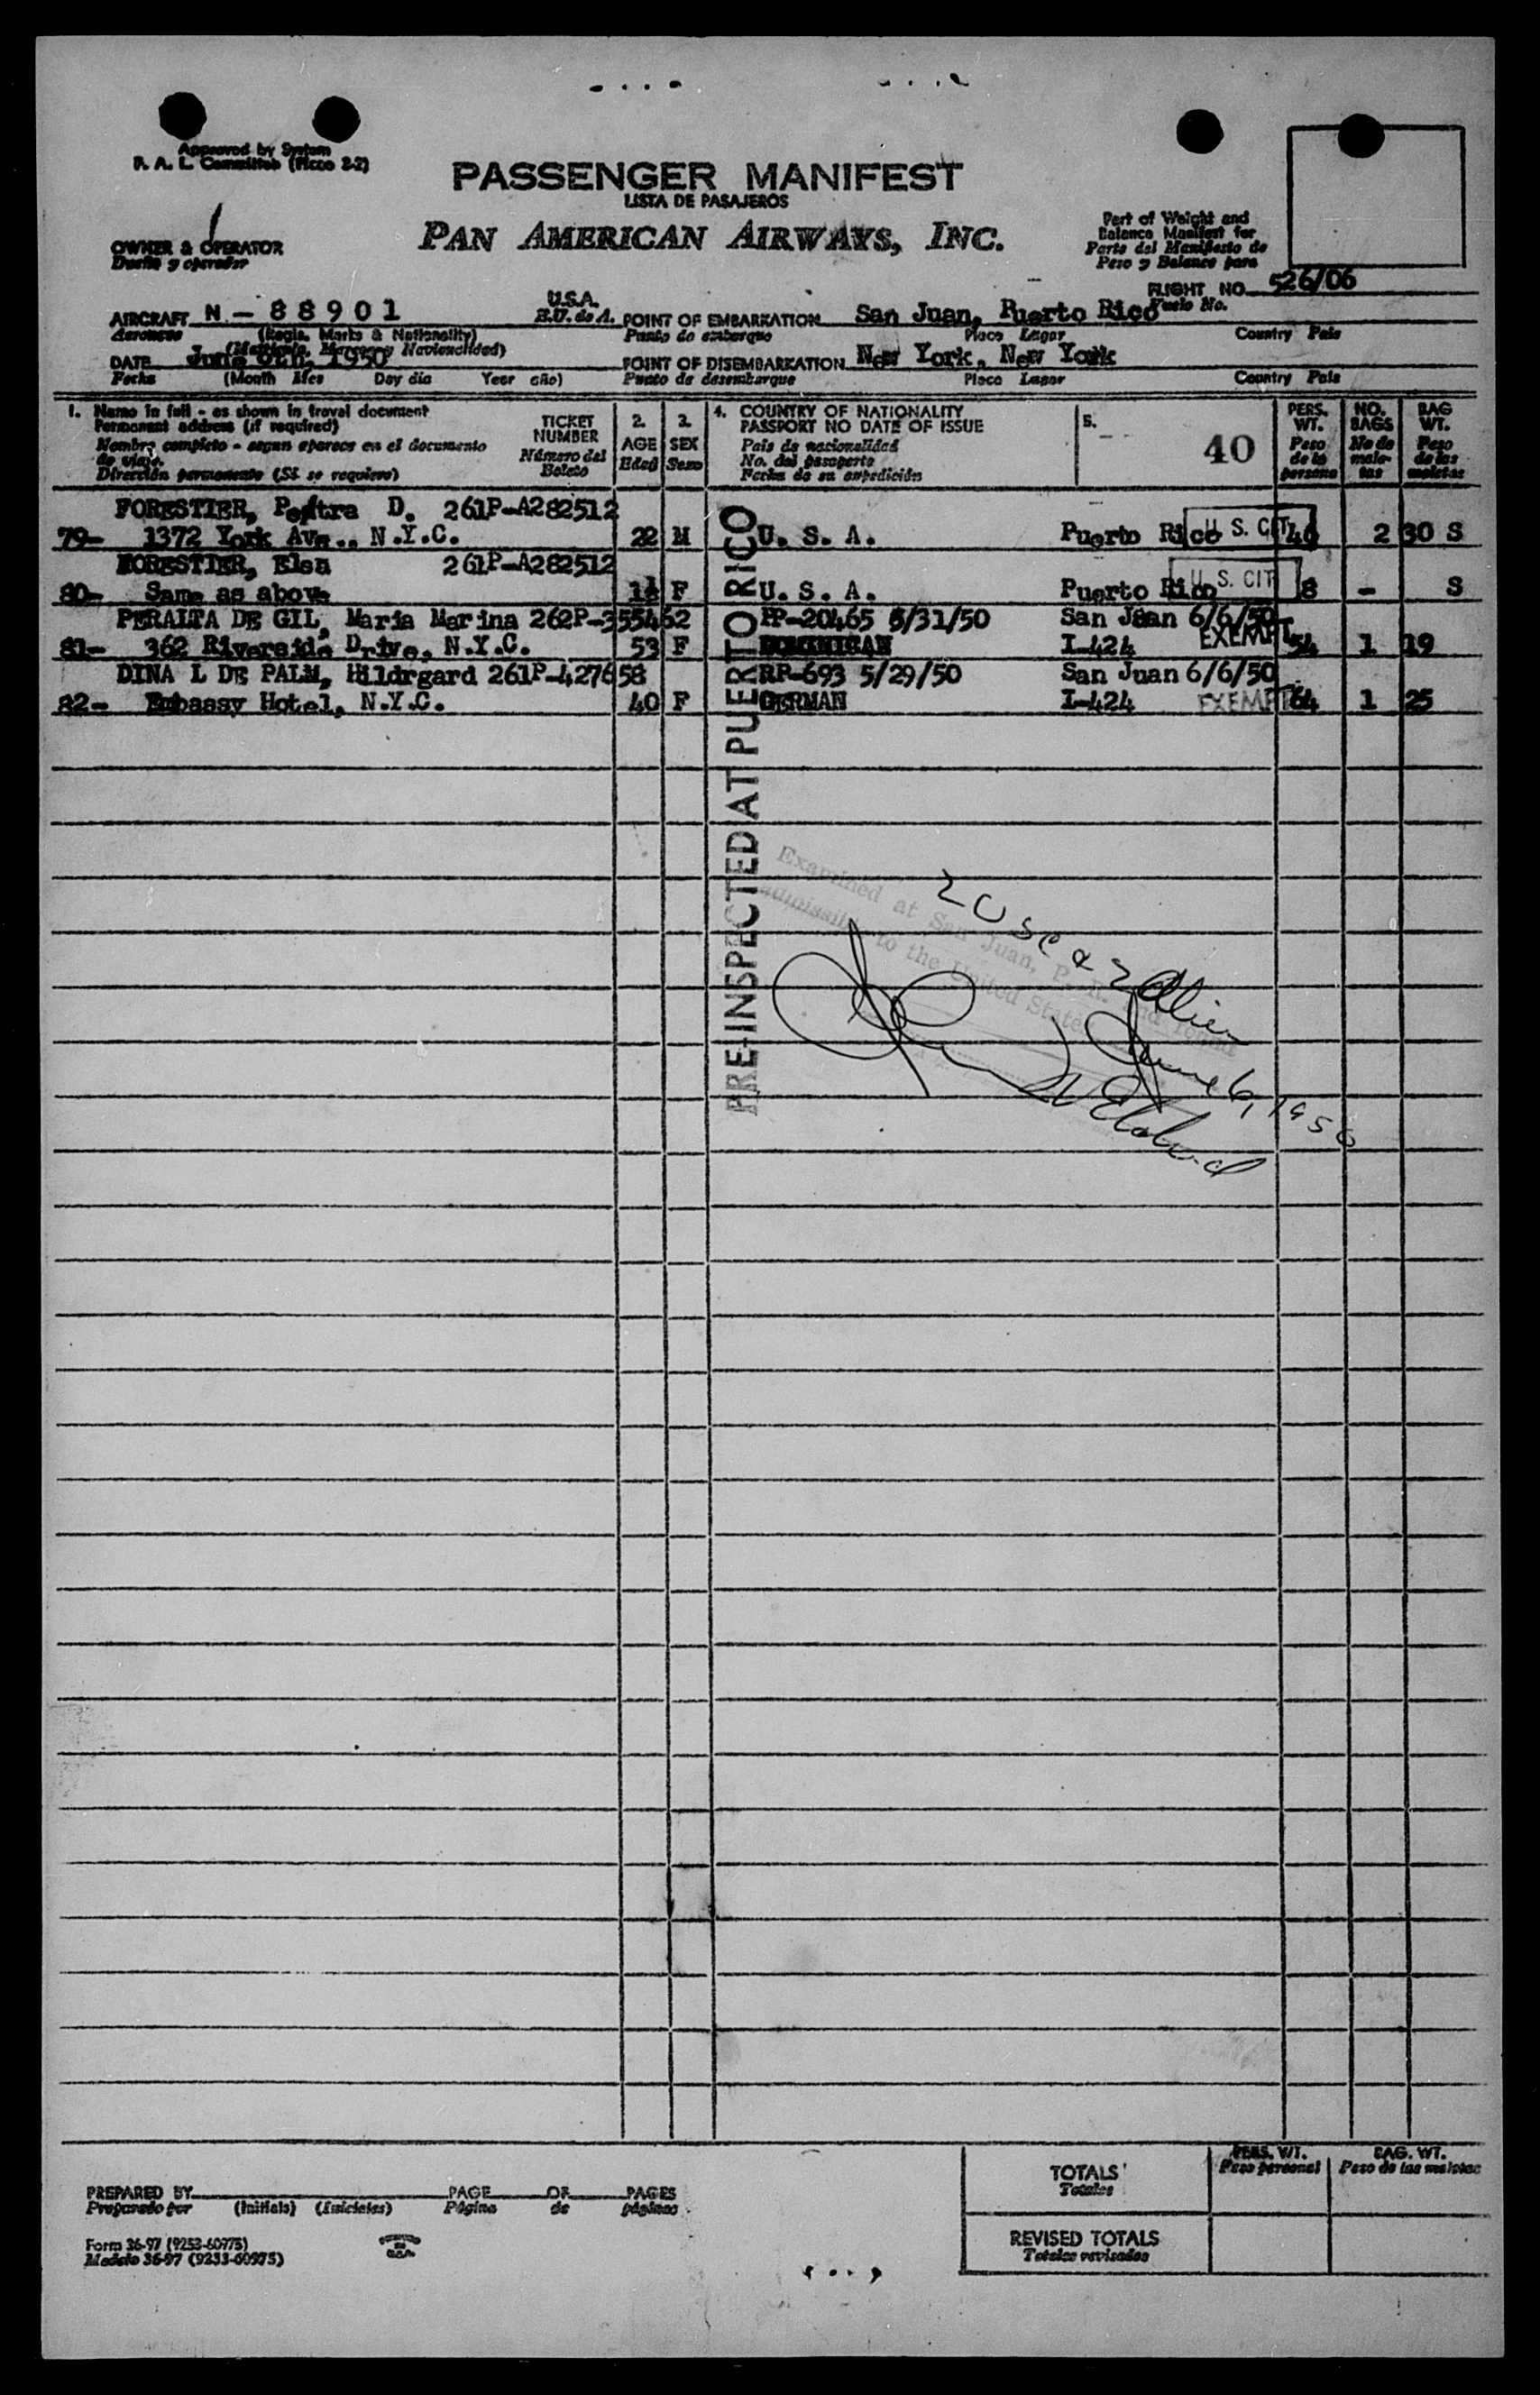 Approved by System
F. A. L. Committee (Ficco 2-2)
PASSENGER MANIFEST
LISTA DE PASAJEROS
PAN AMERICAN AIRWAYS, INC.
OWNER & OPERATOR
Dueño y operador
Part of Weight and
Balance Manifest for
Parte del Manifiesto de
Peso y Balance para
FLIGHT NO. 526/06
Vuelo No.
AIRCRAFT N - 88901 U.S.A.
E.U. de A.
Aeronave (Regis. Marks & Nationality)
(Matricula, Marcas y Nacionalidad)
POINT OF EMBARKATION San Juan, Puerto Rico
Punto de embarque Place Lugar Country Pais
DATE June 6th, 1950
Fecha (Month Mes Day dia Year año)
POINT OF DISEMBARKATION New York, New York
Punto de desembarque Place Lugar Country Pais
1. Name in full - as shown in travel document
Permanent address (if required)
Nombre completo - segun aparece en el documento
de viaje.
Dirección permanente (Si se requiere)
TICKET
NUMBER
Número del
Boleto
2.
AGE
Edad
3.
SEX
Sexo
4. COUNTRY OF NATIONALITY
PASSPORT NO DATE OF ISSUE
Pais de nacionalidad
No. del pasaporte
Fecha de su expedición
5.
40
PERS.
WT.
Peso
de la
persona
NO.
BAGS
No de
male-
tas
BAG
WT.
Peso
de las
maletas
FORESTIER, D. 261P-A282512
79- 1372 York Ave., N.Y.C. 22 M U. S. A. Puerto Rico U S. CIT 46 2 30 S
FORESTIER, Elsa 261P-A282512
80- Same as above F U. S. A. Puerto Rico U. S. CIT 8 - S
PERALTA DE GIL, Maria Marina 262P-355462 PP-20465 5/31/50 San Juan 6/6/50
81- 362 Riverside Drive, N.Y.C. 53 F DOMINICAN I-424 EXEMPT 54 1 19
DINA L DE PALM, Hildrgard 261P-427658 RP-693 5/29/50 San Juan 6/6/50
82- Embassy Hotel, N.Y.C. 40 F GERMAN I-424 EXEMPT 64 1 25
PRE-INSPECTED AT PUERTO RICO
Examined at San Juan, P. R. and found
admissible to the United States
2 USC & 2 Alien
June 6, 1950
PREPARED BY
Preparado por (Initials) (Iniciales)
PAGE OF PAGES
Página de páginas
TOTALS
Totales
PERS. WT.
Peso personal
BAG. WT.
Peso de las maletas
REVISED TOTALS
Totales revisados
Form 36-97 (9253-60975)
Modelo 36-97 (9233-60975)